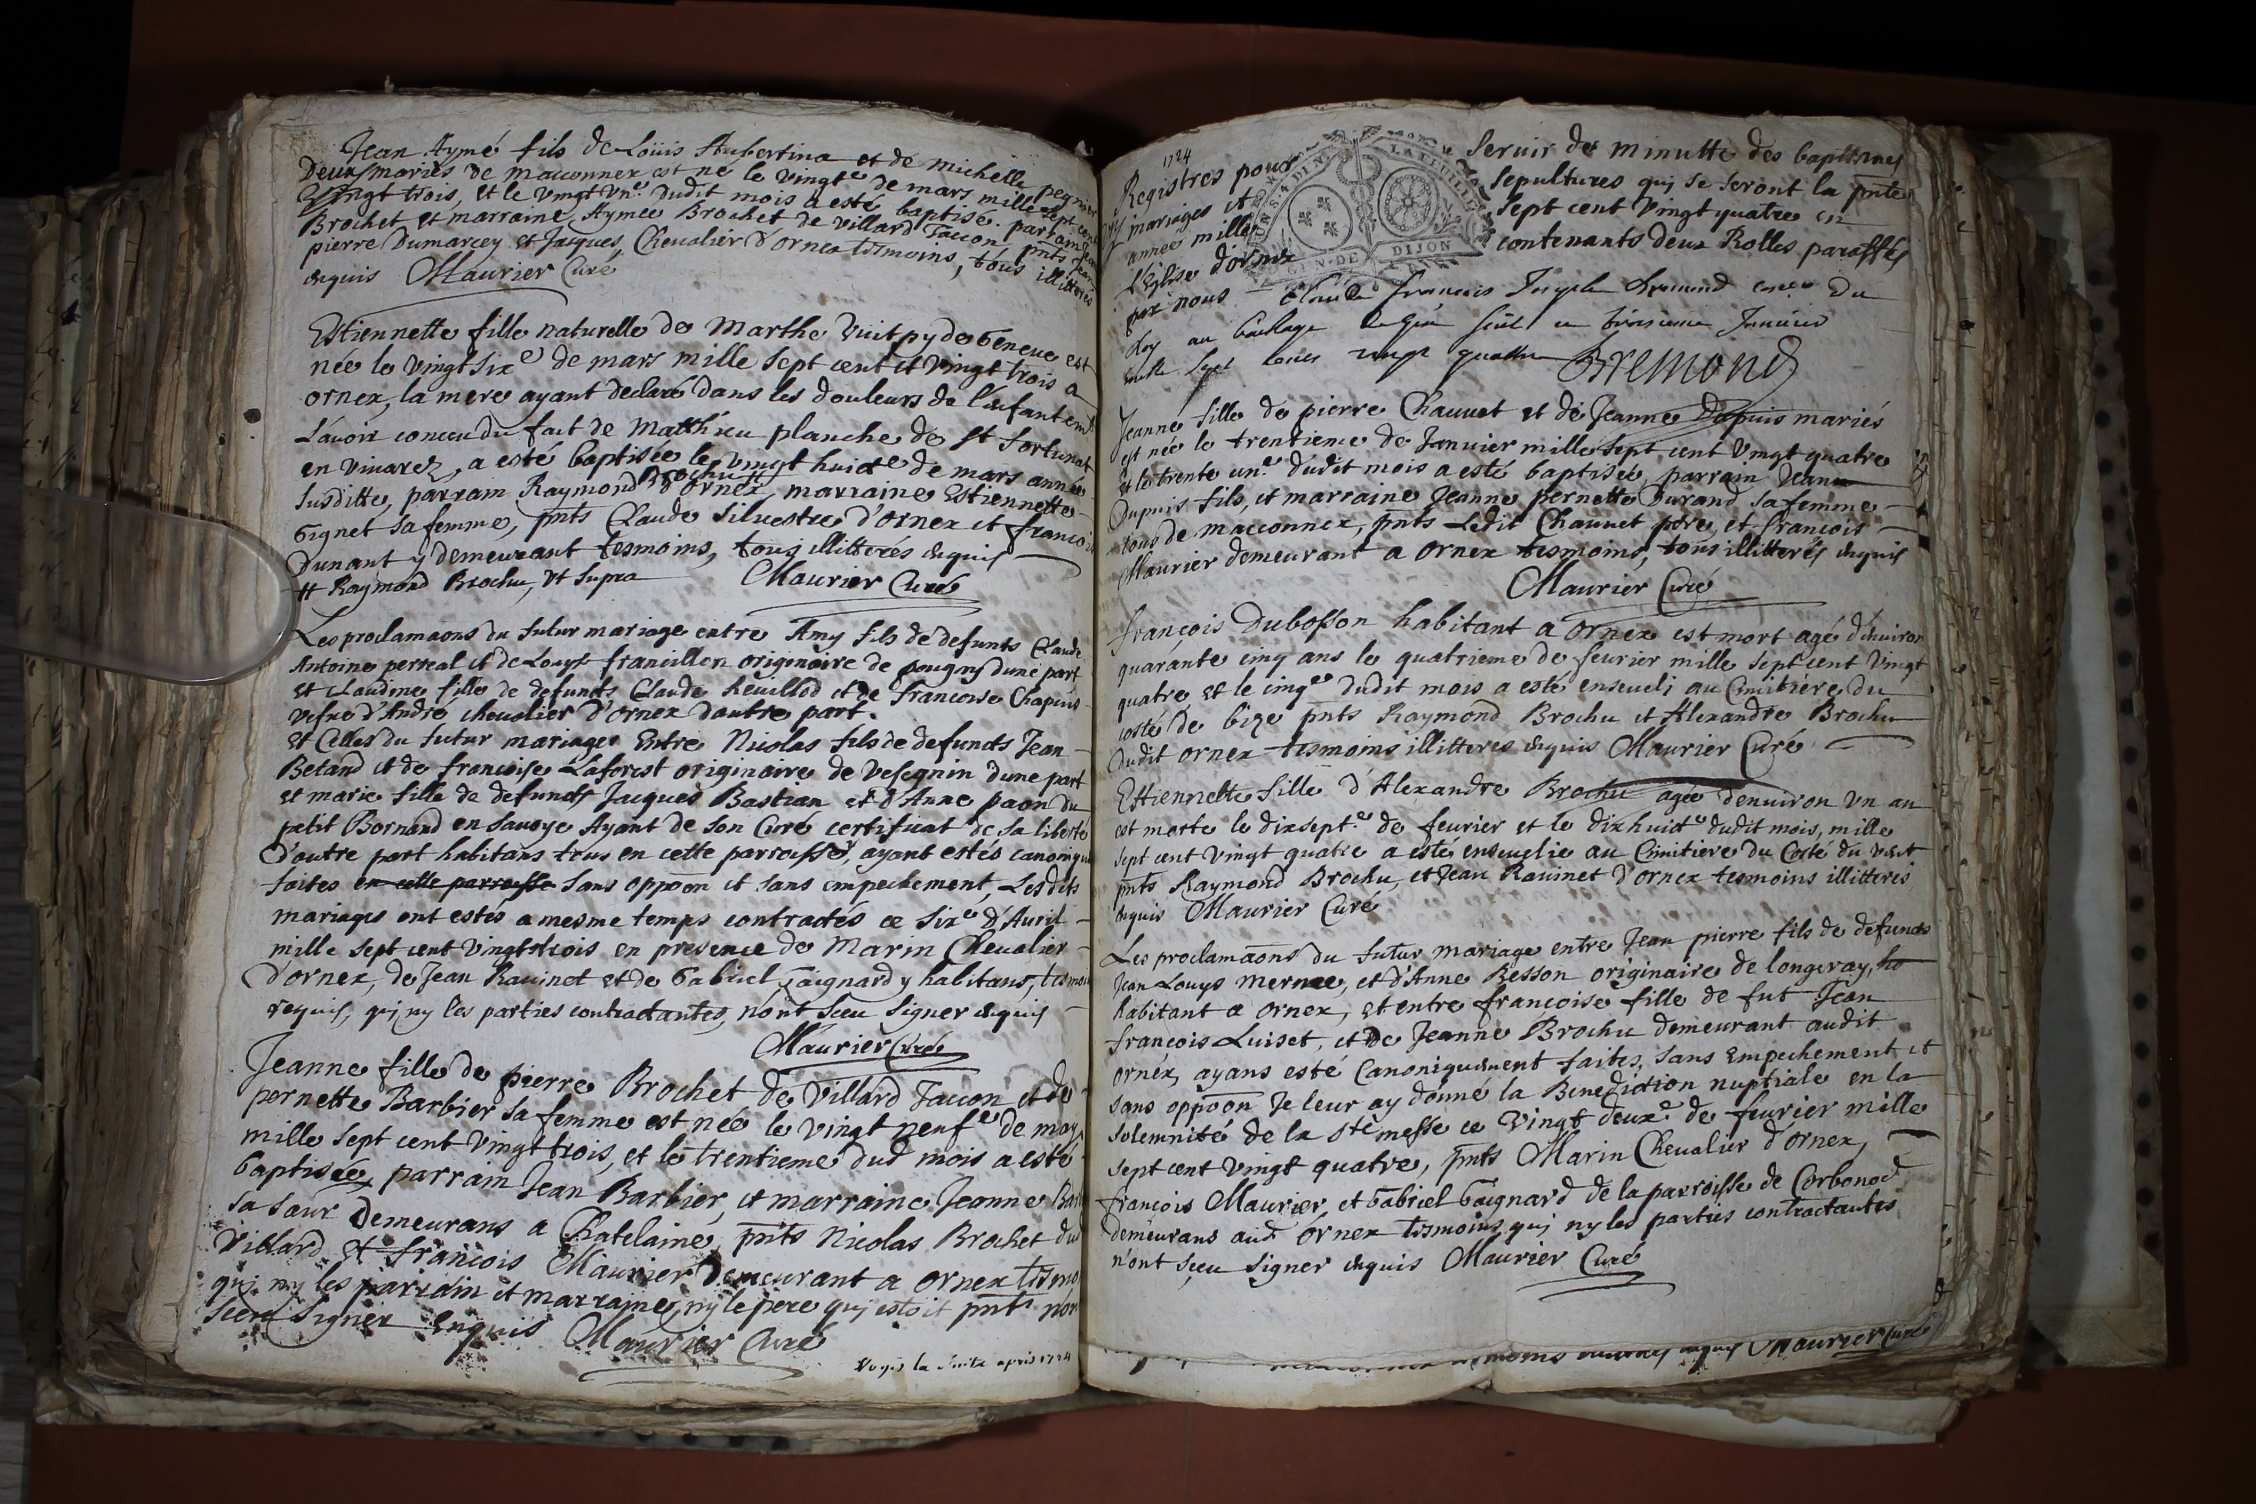 Jean Aymé fils de Loüis Aubertina et de michelle pegnier
Deux mariés de maconnex est né le vingte de mars mille sept cent
Vingt trois, et le vingt vn.e dudit mois a esté baptisé. parrain Jean
Brochet et marraine Aymée Brochet de villard Taccon, pnts Jean
pierre Dumarcey et Jacques Chevalier d'ornex tesmoins, tous illitterés
enquis Maurier Curé
Estiennette fille naturelle de Marthe Vuitpy de Geneue est
née le vingt sixe de mars mille sept cent et vingt trois a
ornex, la mere ayant declaré dans les douleurs de l'enfantemt
L'avoir conceu du fait de Matthieu planche de St fortunat
en vivarez, a esté baptisée le vingt huicte de mars année
susditte, parrain Raymond Brochu # d'ornex, marraine Estiennette
Gignet sa femme, pnts Claude Silvestre d'ornex et francois
Dunant y demeurant tesmoins, tous illitterés enquis
# Raymond Brochu, vt supra Maurier Curé
Les proclamaons du futur mariage entre Amy fils de defunts Claude
Antoine perreal et de Louyse francillon originaire de pougny d'une part
et Claudine fille de defuncts Claude heuillod et de francoise Chapuis
vefue d'André chevalier d'ornex d'autre part.
Et Celles du futur mariage Entre Nicolas fils de defuncts Jean
Betand et de francoise Laforest originaire de vesegnin d'une part
et marie fille de defuncts Jacques Bastian et d'Anne paon du
petit Bornand en savoye Ayant de son Curé certificat de sa liberté
d'autre part habitans tous en cette parroisse, ayant estés canoniqu
faites en cette parroisse sans oppoon et sans empechement, Les dits
mariages ont estés a mesme temps contractés ce sixe d'Avril
mille sept cent vingt trois en presence de Marin Chevalier
d'ornex, de Jean Ravinet et de Gabriel Gaignard y habitans, tesmoi
requis, qui ny les parties contractantes, n'ont sceu signer enquis
Maurier Curé
Jeanne fille de pierre Brochet de villard Taccon et de
pernette Barbier sa femme est née le vingt neufe de may
mille sept cent vingt trois, et le trentieme dud mois a esté
baptisée, parrain Jean Barbier, et marraine Jeanne Bar
sa sœur demeurans a Chatelaine, pnts Nicolas Brochet du
Villard et francois Maurier demeurant a ornex tesmo
qui ny les parrain et marraine, ny le pere qui estoit pnt n'on
sceu signer enquis Maurier Curé
Voyés la suite après 1724
1724
Registres pour servir de minutte des baptemes
mariages et sepultures qui se seront la pnte
année mille sept cent vingt quatre en
L'Eglise d'ornex contenants deux Rolles paraffés
par nous Claude francois Joseph Bremond du
Roy au bailliage de Gex le troisieme Janvier
mille sept cent vingt quatre Bremond
GEN·DE DIJON
Jeanne fille de pierre Chauuet et de Jeanne Dupuis mariés
est née le trentieme de Janvier mille sept cent vingt quatre
et le trente un.e dudit mois a esté baptisée, parrain Jean
Dupuis fils, et marraine Jeanne pernette Durand sa femme
tous de maconnex, pnts Ledit Chauuet pere, et francois
Maurier demeurant a ornex tesmoins, tous illitterés enquis
Maurier Curé
françois Dubosson habitant a ornex est mort agé d'environ
quarante cinq ans le quatrieme de feurier mille sept cent vingt
quatre et le cinqe dudit mois a esté enseueli au Cimitiére du
costé de bize pnts Raymond Brochu et Alexandre Brochu
dudit ornex tesmoins illitteres enquis Maurier Curé
Estiennette fille d'Alexandre Brochu agée d'enuiron vn an
est morte le dixsept.e de feurier et le dixhuicte dudit mois, mille
sept cent vingt quatre a esté enseuelie au Cimitiere du Costé du vent
pnts Raymond Brochu, et Jean Ravinet d'ornex tesmoins illitterés
enquis Maurier Curé
Les proclamaons du futur mariage entre Jean pierre fils de defuncts
Jean Louys mermee, et d'Anne Besson originaire de longeray, ho
habitant a ornex, et entre francoise fille de fut Jean
françois Luiset, et de Jeanne Brochu demeurant audit
ornex, ayans esté Canoniquement faites, sans empechement et
sans oppoon Je leur ay donné la Benediction nuptiale en la
solemnité de la ste messe ce vingt deuxe de feurier mille
sept cent vingt quatre, pnts Marin Chevalier d'ornex,
francois Maurier, et Gabriel Gaignard de la parroisse de Corbonod
demeurans aud ornex tesmoins, qui ny les parties contractantes
n'ont sçeu signer enquis Maurier Curé
enquis Maurier Curé